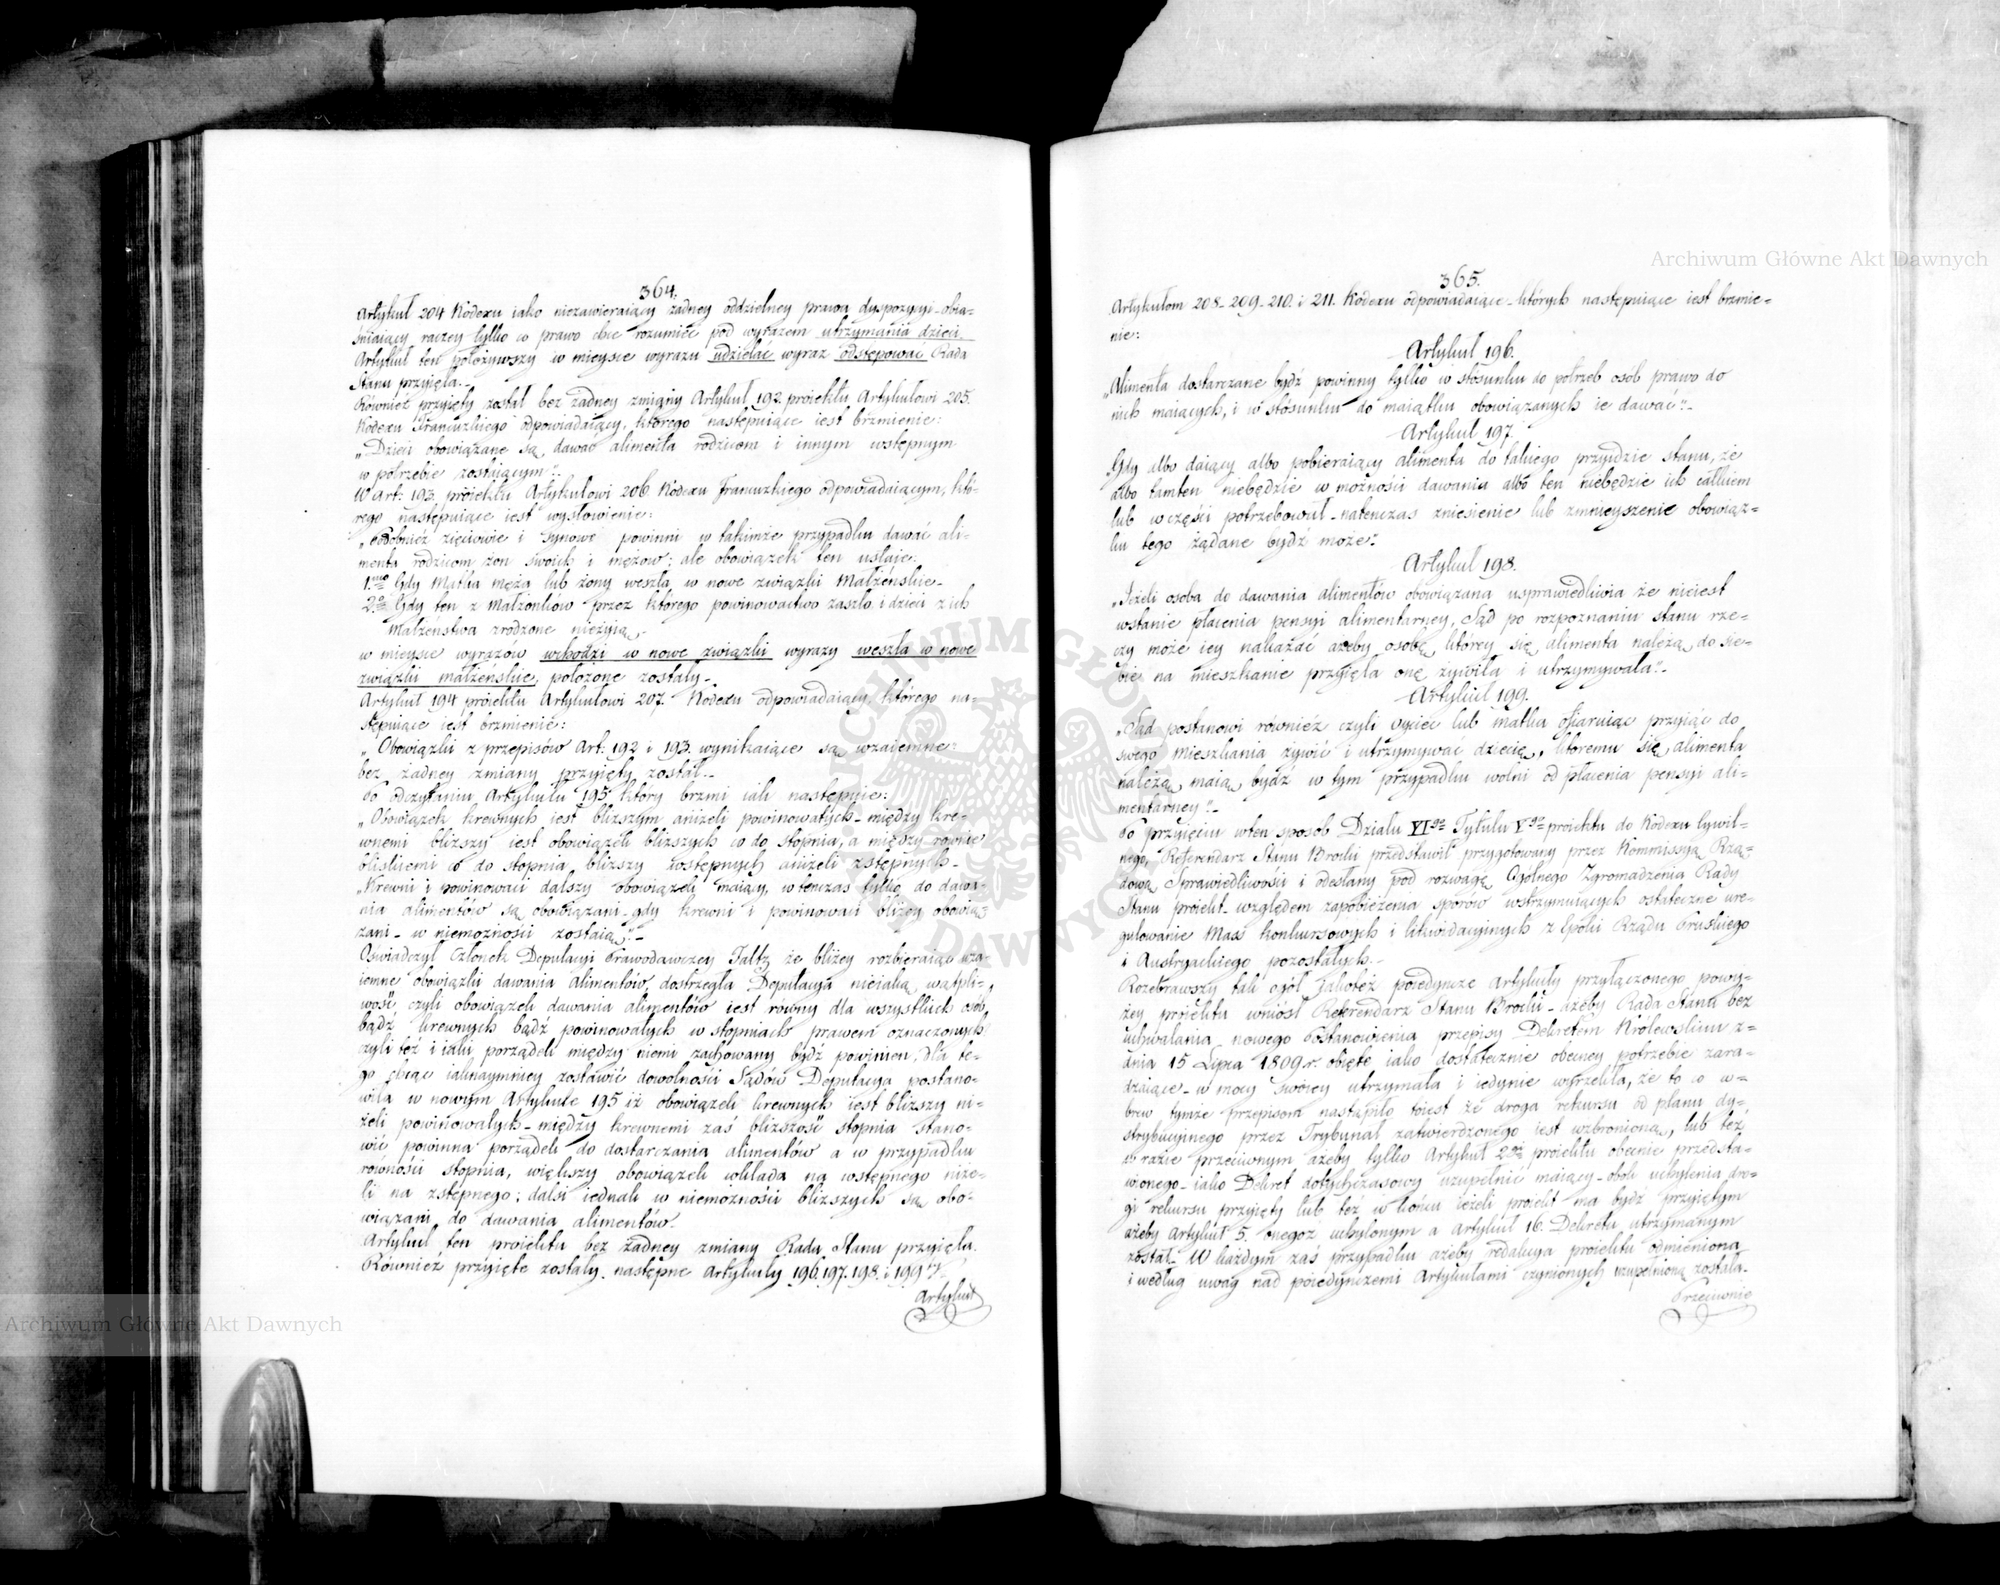 364.
Artykuł 204 Kodexu iako niezawieraiący żadney oddzielney prawa dyspozycyi _ obia=
śniaiący raczey tylko co prawo chce rozumieć pod wyrazem utrzymania dzieci.
Artykuł ten położywszy w mieysce wyrazu udzielać wyraz odstępować Rada
Stanu przyięła._
Również przyięty został bez żadney zmiany Artykuł 192 proiektu Artykułowi 205.
Kodexu Francuzkiego odpowiadaiący, którego następuiące iest brzmienie:
„Dzieci obowiązane są, dawać alimenta rodzicom i innym wstępnym
w potrzebie zostaiącym"._
W Art: 193. proiektu Artykułowi 206 Kodexu Francuzkiego odpowiadaiącym, któ-
rego następuiące iest wysłowienie:
„Podobnież zięciowie i Synowe powinni w takimże przypadku dawać ali-
menta rodzicom żon swoich i mężow; ale obowiązek ten ustaie:
1mo Gdy Matka męża lub żony weszła w nowe związki Małżeńskie_
2do Gdy ten z Małżonków przez którego powinowactwo zaszło i dzieci z ich
Małżeństwa zrodzone nieżyią_
w mieysce wyrazow wchodzi w nowe związki wyrazy weszła w nowe
związki małżeńskie, położone zostały_
Artykuł 194 proiektu Artykułowi 207. Kodexu odpowiadaiący, którego na-
stępuiące iest brzmienie:
„Obowiązki z przepisów Art: 192 i 193. wynikaiące są wzaiemne:
bez żadney zmiany przyięty został._
Po odczytaniu Artykułu 195 który brzmi iak następuie:
„Obowiązek krewnych iest bliższym aniżeli powinowatych_ między kre-
wnemi bliższy iest obowiązek bliższych co do stopnia, a między równie
bliskiemi co do stopnia, bliższy wstępnych aniżeli zstępnych_
„Krewni i powinowaci dalszy obowiązek maiący, w tenczas tylko do dawa-
nia alimentów są obowiązani_ gdy krewni i powinowaci bliżey obowią-
zani_ w niemożności zostaią"_
Oświadczył Członek Deputacyi Prawodawczey Faltz że bliżey rozbieraiąc wza-
iemne obowiązki dawania alimentów, dostrzegła Deputacya nieiaką wątpli-
wość, czyli obowiązek dawania alimentów iest równy dla wszystkich osób
bądź krewnych bądź powinowatych w stopniach prawem oznaczonych
czyli też i iaki porządek między niemi zachowany bydź powinien, dla te-
go chcąc iaknaymniey zostawić dowolności Sądów Deputacya postano-
wiła w nowym Artykule 195 iż obowiązek krewnych iest bliższy ni-
żeli powinowatych_ między krewnemi zaś bliższość stopnia stano-
wić powinna porządek do dostarczania alimentów a w przypadku
rowności stopnia, większy obowiązek wkłada na wstępnego niże-
li na zstępnego; dalsi iednak w niemożności bliższych są obo-
wiązani do dawania alimentów_
Artykuł ten proiektu bez żadney zmiany Rada Stanu przyięła.
Również przyięte zostały następne Artykuły 196, 197. 198. i 199ty_
Artykuł
365.
Artykułom 208_209_210. i 211. Kodexu odpowiadaiące_ których następuiące iest brzmie=
nie:
Artykuł 196.
„Alimenta dostarczane bydź powinny tylko w stosunku do potrzeb osób prawo do
nich maiących, i w stosunku do maiątku obowiązanych ie dawać"_
Artykuł 197
„Gdy albo daiący albo pobieraiący alimenta do takiego przyidzie stanu, że
albo tamten niebędzie w możności dawania albo ten niebędzie ich całkiem
lub w części potrzebował_ natenczas zniesienie lub zmnieyszenie obowiąz-
ku tego żądane bydź może".
Artykuł 198.
„Jeżeli osoba do dawania alimentów obowiązana usprawiedliwia że nieiest
wstanie płacenia pensyi alimentarney, Sąd po rozpoznaniu stanu rze-
czy może iey nakazać ażeby osobę, którey się alimenta należą, do sie-
bie na mieszkanie przyięła onę żywiła i utrzymywała"_
Artykuł 199.
„Sąd postanowi również czyli Oyciec lub matka ofiaruiąc przyiąć do
swego mieszkania żywić i utrzymywać dziecię, któremu się alimenta
należą, maią bydź w tym przypadku wolni od płacenia pensyi ali-
mentarney"_
Po przyięciu wten sposób Działu VIgo Tytułu Vgo proiektu do Kodexu Cywil-
nego, Referendarz Stanu Brocki przedstawił przygotowany przez Kommissyą Rzą-
dową Sprawiedliwości i odesłany pod rozwagę Ogólnego Zgromadzenia Rady
Stanu proiekt_ względem zapobieżenia sporów wstrzymuiących ostateczne ure-
gulowanie Mass konkursowych i likwidacyinych z Epoki Rządu Pruskiego
i Austryackiego pozostałych._
Rozebrawszy tak ogół jakoteż poiedyncze Artykuły przyłączonego powy-
żey proiektu wniosł Referendarz Stanu Brocki_ ażeby Rada Stanu bez
uchwalania nowego Postanowienia przepisy Dekretem Królewskim z=
dnia 15 Lipca 1809 r. obięte iako dostatecznie obecney potrzebie zara-
dzaiące_ w mocy swoiey utrzymała i iedynie wyrzekła, że to co w=
brew tymże przepisom nastąpiło toiest że droga rekursu od planu dy-
strybucyinego przez Trybunał zatwierdzonego iest wzbronioną, lub też
w razie przeciwnym ażeby tylko Artykuł 2gi proiektu obecnie przedsta-
wionego_ iako Dekret dotychczasowy uzupełnić maiący_ obok uchylenia dro-
gi rekursu przyięty lub też w końcu ieżeli proiekt ma bydź przyiętym
ażeby Artykuł 5. onegoż uchylonym a Artykuł 16. Dekretu utrzymanym
został_ W każdym zaś przypadku ażeby redakcya proiektu odmienioną
i według uwag nad poiedynczemi Artykułami czynionych uzupełnioną została_
Przeciwnie
Archiwum Główne Akt Dawnych
Archiwum Główne Akt Dawnych
ARCHIWUM GŁÓWNE AKT DAWNYCH